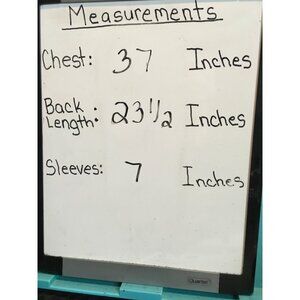 Measurements
Chest: 37 Inches
Back
Length: 23 1/2 Inches
Sleeves: 7 Inches
Quartet